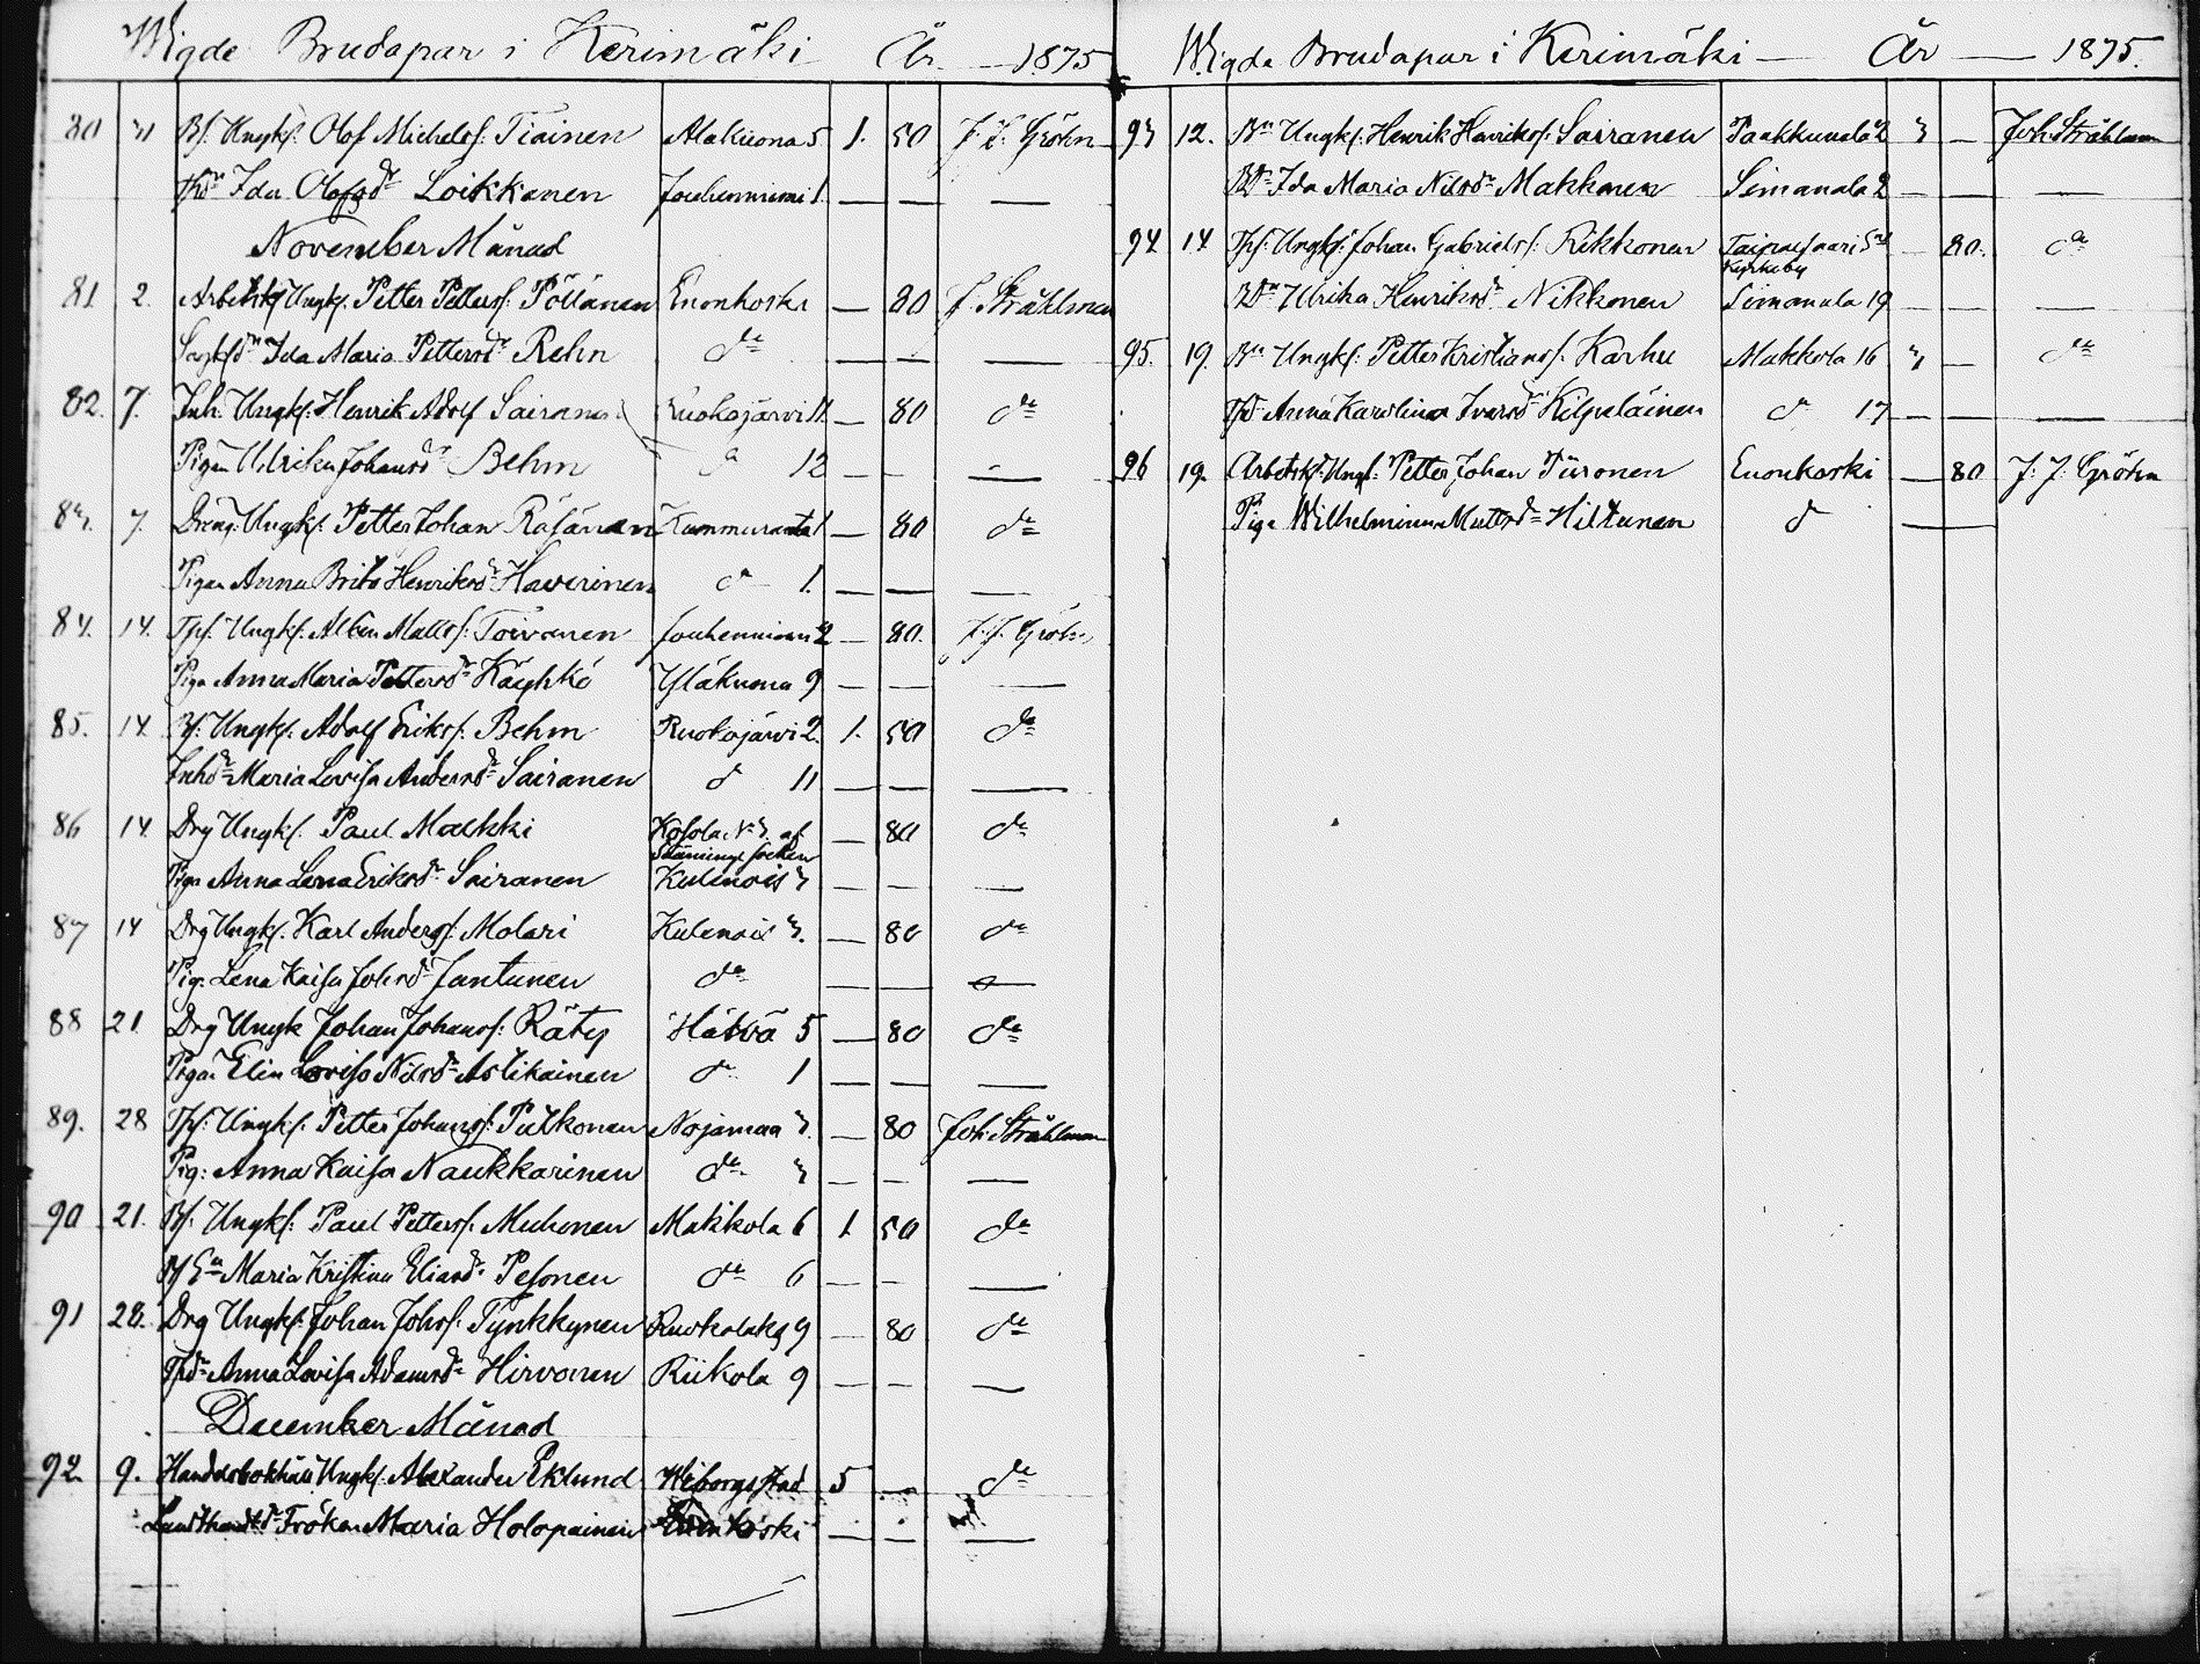 Wigde Brudapar i Kerimäki År — 1875
80 31 Bs. Ungk: Olof Michelss: Tiainen Alakuona 5 1. 50 J. J. Gröhn
Thdn Ida Olofsdr Loikkanen Jouhenniemi 1 — — —
November Månad
81 2. Arbetsk: Ungk: Petter Petterss: Pöllänen Enonkoski — 80 J. Stråhlman
Ida Maria Pettersdr Rehn do — — —
82. 7. Inh. Ungk: Henrik Adolf Sairanen Ruokojärvi 11 — 80 do
Pigan Ulrika Johansdr Behm do 12 — — —
83. 7. Dreng: Ungk: Petter Johan Räsänen Kummuranta 1 — 80 do
Pigan Anna Brita Henriksdr Hawerinen do 1. — — —
84. 14. Tps. Ungk: Albin Matts: Toivanen Jouhenniemi 2 — 80. J. J. Gröhn
Piga Anna Maria Pettersdr Käyhkö Yläkuona 9 — — —
85. 14 Bs: Ungk: Adolf Eriks: Behm Ruokojärvi 2. 1. 50 do
Inhdr Maria Lovisa Andersdr Sairanen do 11 — — —
86 14 Drg Ungk: Paul Malkki Kosola No 3. af — 80 do
Säminge socken
Piga Anna Lena Eriksdr Sairanen Kulennois 3 — — —
87 14 Drg Ungk. Karl Anderss: Molari Kulennois 3. — 80 do
Pig: Lena Kaisa Johsdr Jantunen do — — —
88 21. Drg Ungk Johan Johanss: Räty Hälvä 5 — 80 do
Pigan Elin Lovisa Nilsdr Astikainen do 1 — — —
89. 28 Tps: Ungk: Petter Johanss: Putkonen Nojamaa 3. — 80 Joh. Stråhlman
Pig: Anna Kaisa Naukkarinen do 3 — — —
90 21. Bs: Ungk: Paul Petterss. Muhonen Makkola 6 1 50 do
Maria Kristina Eliasdr Pesonen do 6 — — —
91 28. Drg Ungk: Johan Johss: Tynkkynen Ruokolaks 9 — 80 do
Tpdr Anna Lovisa Adamsdr Hirvonen Riikola 9 — — —
December Månad
92. 9. Handelsbokhåll: Ungk: Alexander Eklund Wiborgs stad 5 — do
Landthandl:dr Fröken Maria Holopainen Enonkoski — — —
Wigde Brudapar i Kerimäki — År — 1875.
93 12. Bn Ungk: Henrik Henrikss: Sairanen Paakkunala 2 3 — Joh. Stråhlman
Bdr Ida Maria Nilsdr Makkonen Simanala 2 — — —
94 14 Tps: Ungk: Johan Gabrielss: Rikkonen Taipalsaari Sn — 80. do
Kyrkoby
Bdn Ulrika Henriksdr Nikkonen Simanala 19 — — —
95. 19. Bn Ungk: Petter Kristianss: Karhu Makkola 16 3 — do
Tpdr Anna Karolina Ivarsdr Kilpeläinen do 17 — — —
96 19. Arbetsk: Ungk: Petter Johan Piironen Enonkoski — 80 J. J. Gröhn
Piga Wilhelmina Mattsdr Hiltunen do —